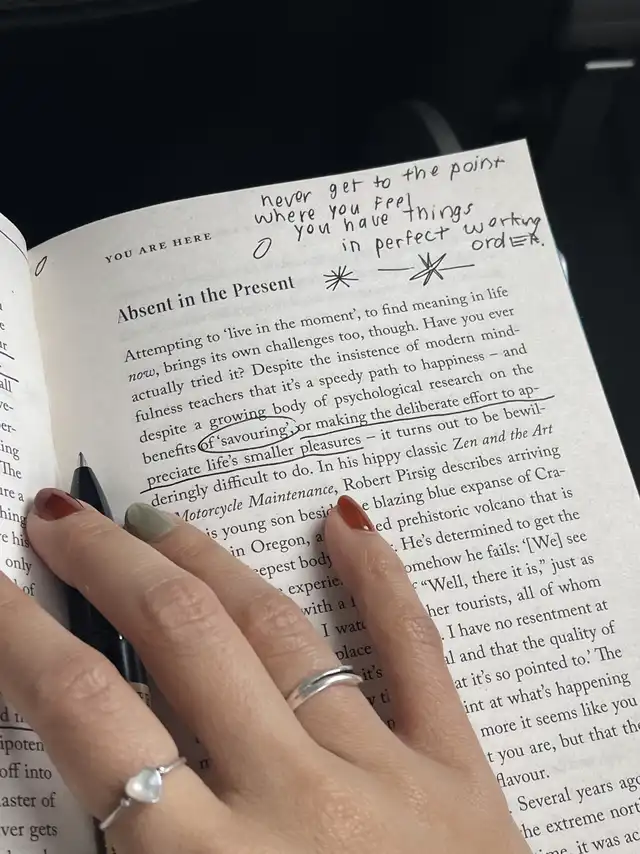 never get to the point
where you feel
you have things
in perfect working
order.
YOU ARE HERE
Absent in the Present
Attempting to ‘live in the moment’, to find meaning in life
now, brings its own challenges too, though. Have you ever
actually tried it? Despite the insistence of modern mind-
fulness teachers that it’s a speedy path to happiness – and
despite a growing body of psychological research on the
benefits of ‘savouring’, or making the deliberate effort to ap-
preciate life’s smaller pleasures – it turns out to be bewil-
deringly difficult to do. In his hippy classic Zen and the Art
Motorcycle Maintenance, Robert Pirsig describes arriving
is young son besid blazing blue expanse of Cra-
in Oregon, a ed prehistoric volcano that is
eepest body . He’s determined to get the
experie omehow he fails: ‘[We] see
with a f “Well, there it is,” just as
I wat her tourists, all of whom
place . I have no resentment at
it’s al and that the quality of
at it’s so pointed to.’ The
int at what’s happening
more it seems like you
t you are, but that the
flavour.
Several years ago
the extreme nort
me, it was ac
all
ve-
per-
ing
The
are a
hing
re his
only
of
ipoten
off into
aster of
ver gets